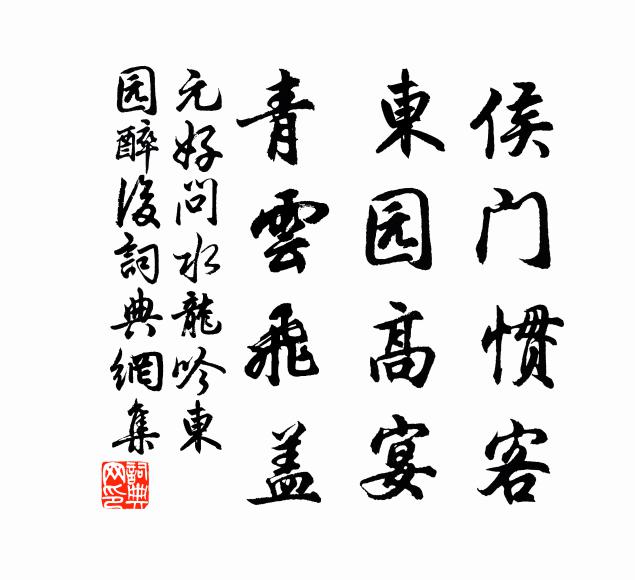 侯门惯客
東园高宴
青雲飛盖
元好问水龍吟東
园醉後詞典網集
詞典网印